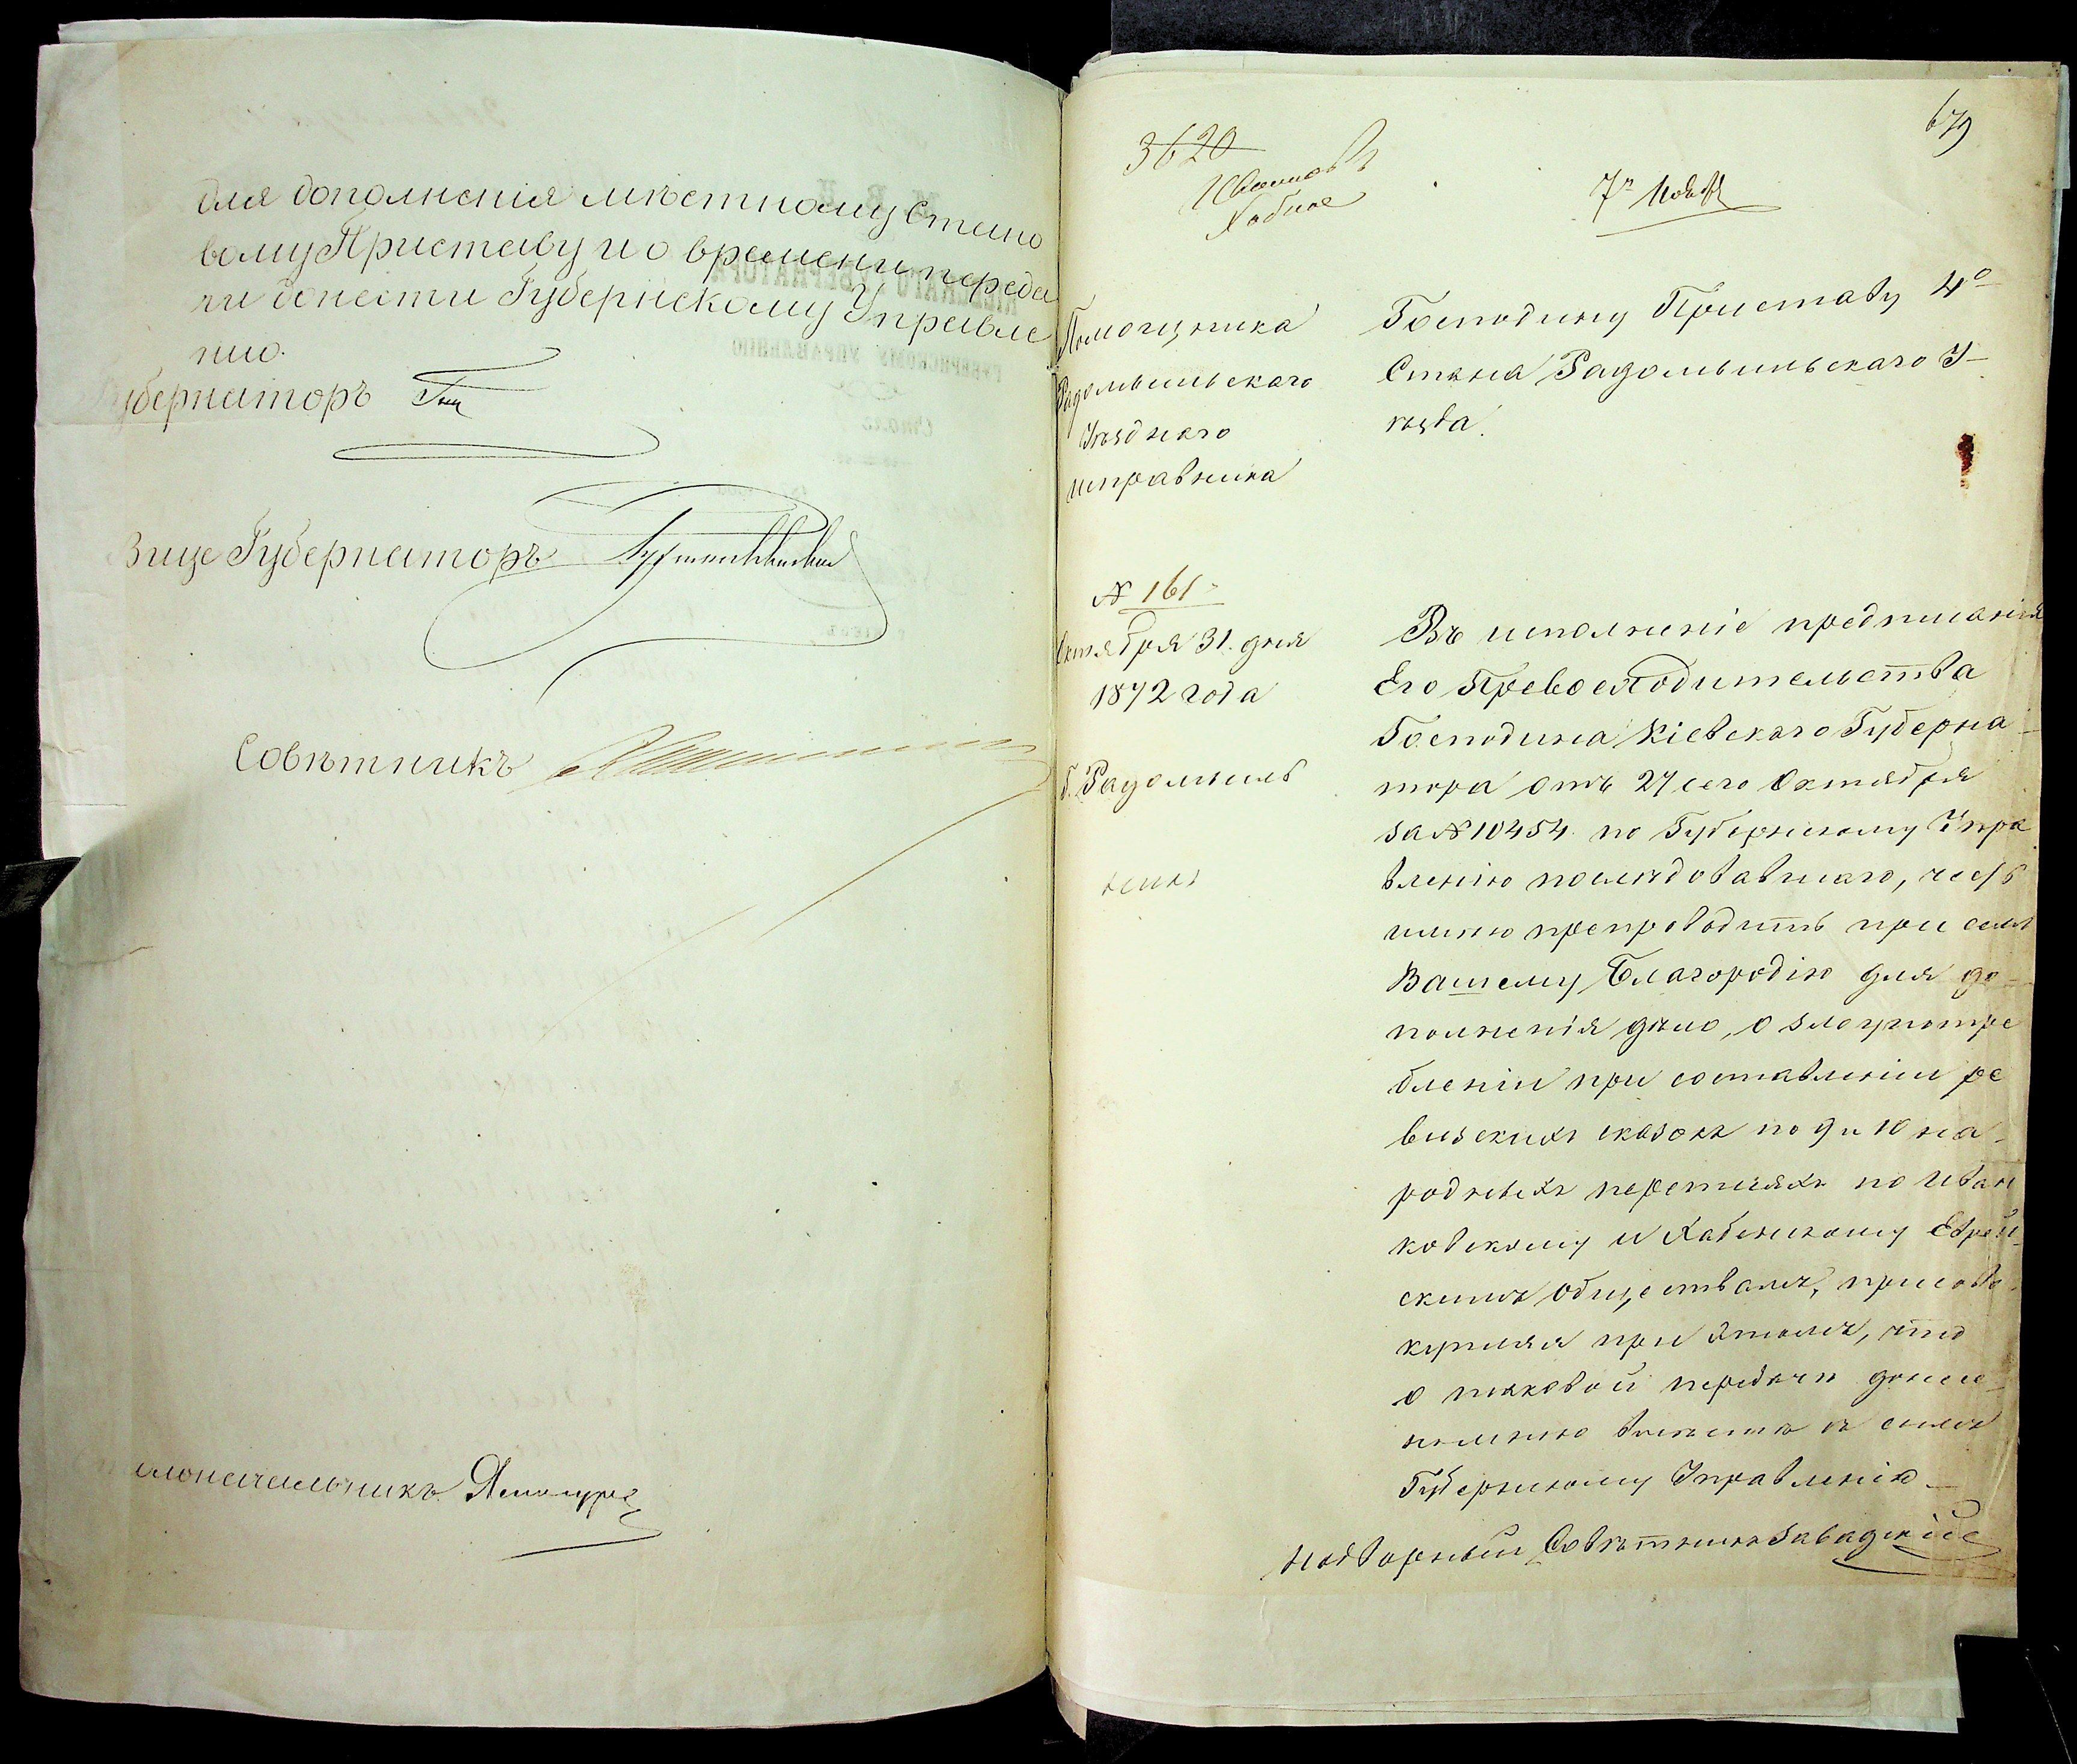 для дополненія мѣстному Стано
вому Приставу и о времени переда
чи донести Губернскому Управле
нію.
Губернаторъ
Вице Губернаторъ
Совѣтникъ
Столоначальникъ
679
3620
Иванковъ
Хабное
7го Нояб
Помощника
Радомысльскаго
Уѣзднаго
исправника
№ 161
Октября 31 дня
1872 года
г. Радомысль
Господину Приставу 4го
Стана Радомысльскаго У-
ѣзда.
Въ исполненіе предписанія
Его Превосходительства
Господина Кіевскаго Губерна-
тора отъ 27 сего Октября
за № 10454 по Губернскому Упра
вленію послѣдовавшаго, честь
имѣю препроводить при семъ
Вашему Благородію для до-
полненія дѣло, о злоупотре
бленіи при составленіи ре
визскихъ сказокъ по 9 и 10 на-
роднымъ переписямъ по Иван
ковскому и Хабенскому Еврей-
скимъ обществамъ, присово-
купляя при этомъ, что
о таковой передачѣ донесе-
но мною вмѣстѣ съ симъ
Губернскому Управленію
Надворный Совѣтникъ Завадскій